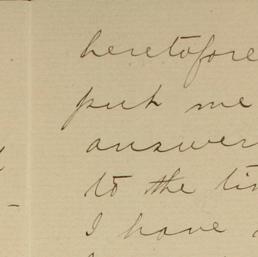 heretofore
put me
answer
to the tim
I have